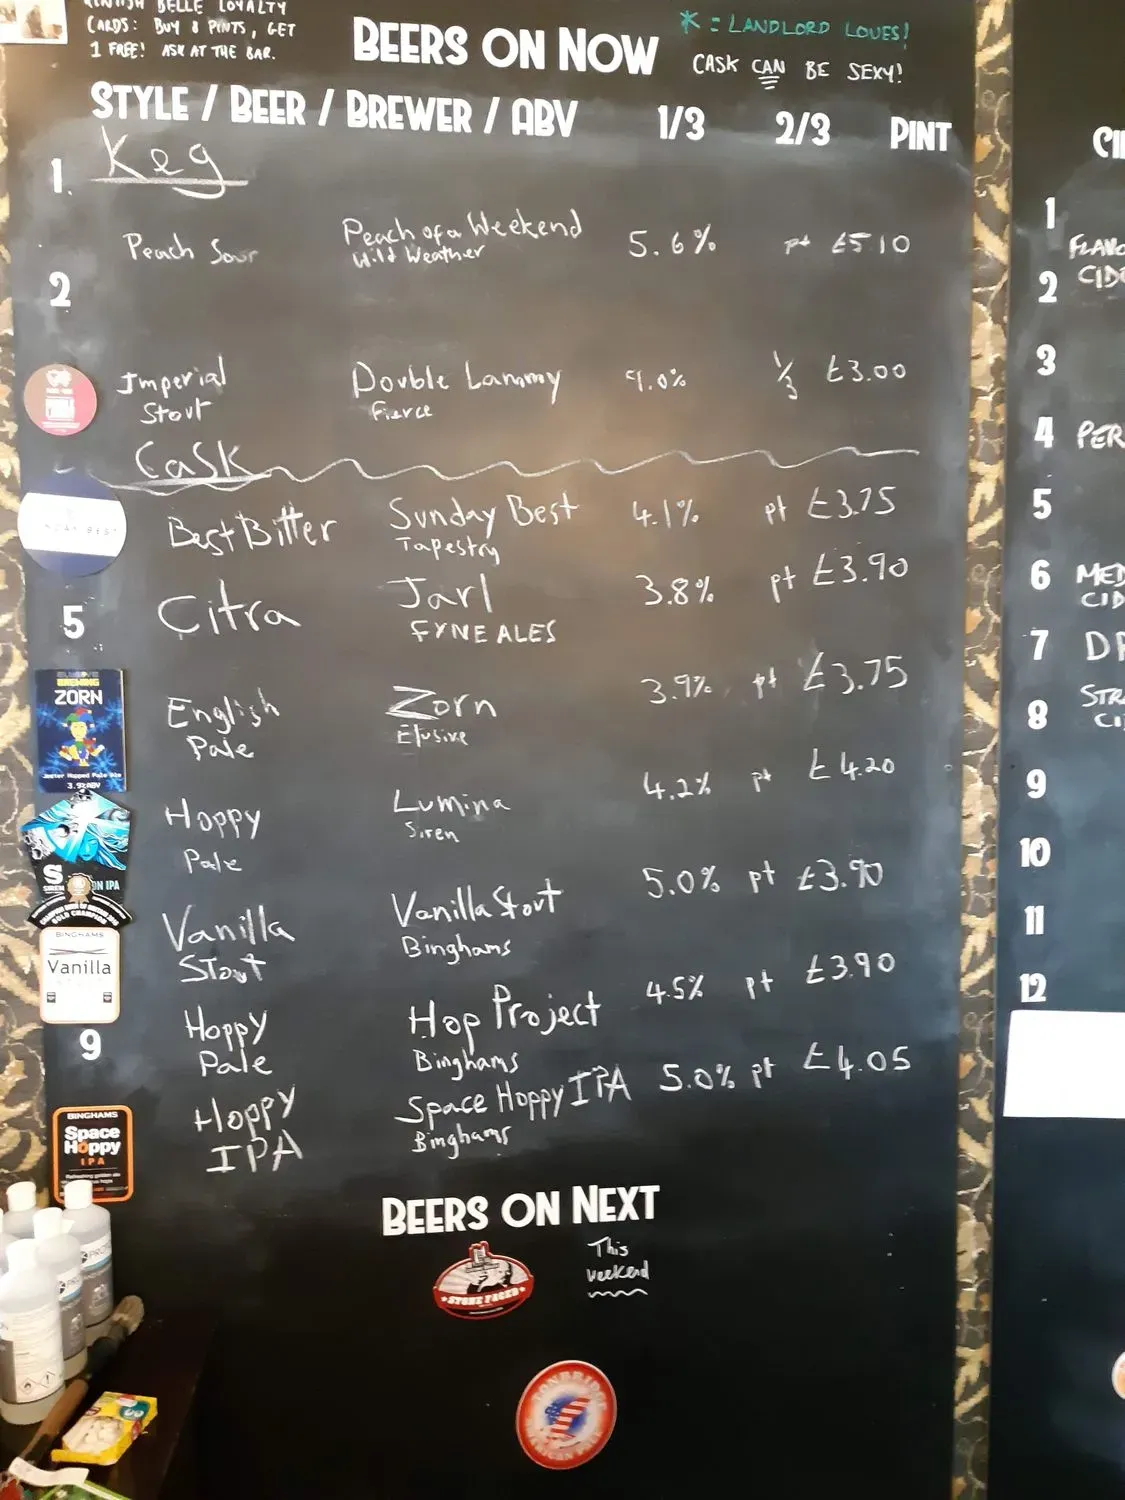 BELLE LOYALTY
CARDS: BUY 8 PINTS, GET
1 FREE! ASK AT THE BAR.
BEERS ON NOW
* = LANDLORD LOVES!
CASK CAN BE SEXY!
STYLE / BEER / BREWER / ABV 1/3 2/3 PINT
Keg
1.
Peach Sour Peach of a Weekend 5.6% pt £5 10
Wild Weather
2
Imperial Double Lammy 9.0% 1/3 £3.00
Stout Fierce
Cask
Best Bitter Sunday Best 4.1% pt £3.75
Tapestry
5 Citra Jarl 3.8% pt £3.90
FYNE ALES
English Zorn 3.9% pt £3.75
Pale Elusive
Hoppy Lumina 4.2% pt £4.20
Pale Siren
Vanilla Vanilla Stout 5.0% pt £3.90
Stout Binghams
9 Hoppy Hop Project 4.5% pt £3.90
Pale Binghams
Hoppy Space Hoppy IPA 5.0% pt £4.05
IPA Binghams
BEERS ON NEXT
This
weekend
STONE FACED
BREWING
ZORN
Jester Hopped Pale Ale
3.9% ABV
S
SIREN
ON IPA
GOLD CHAMPION
BINGHAMS
Vanilla
BINGHAMS
Space
Hoppy
IPA
Refreshing golden ale
CI
1
FLAVO
2 CID
3
4 PER
5
6 MED
CID
7 DR
8 STR
CI
9
10
11
12